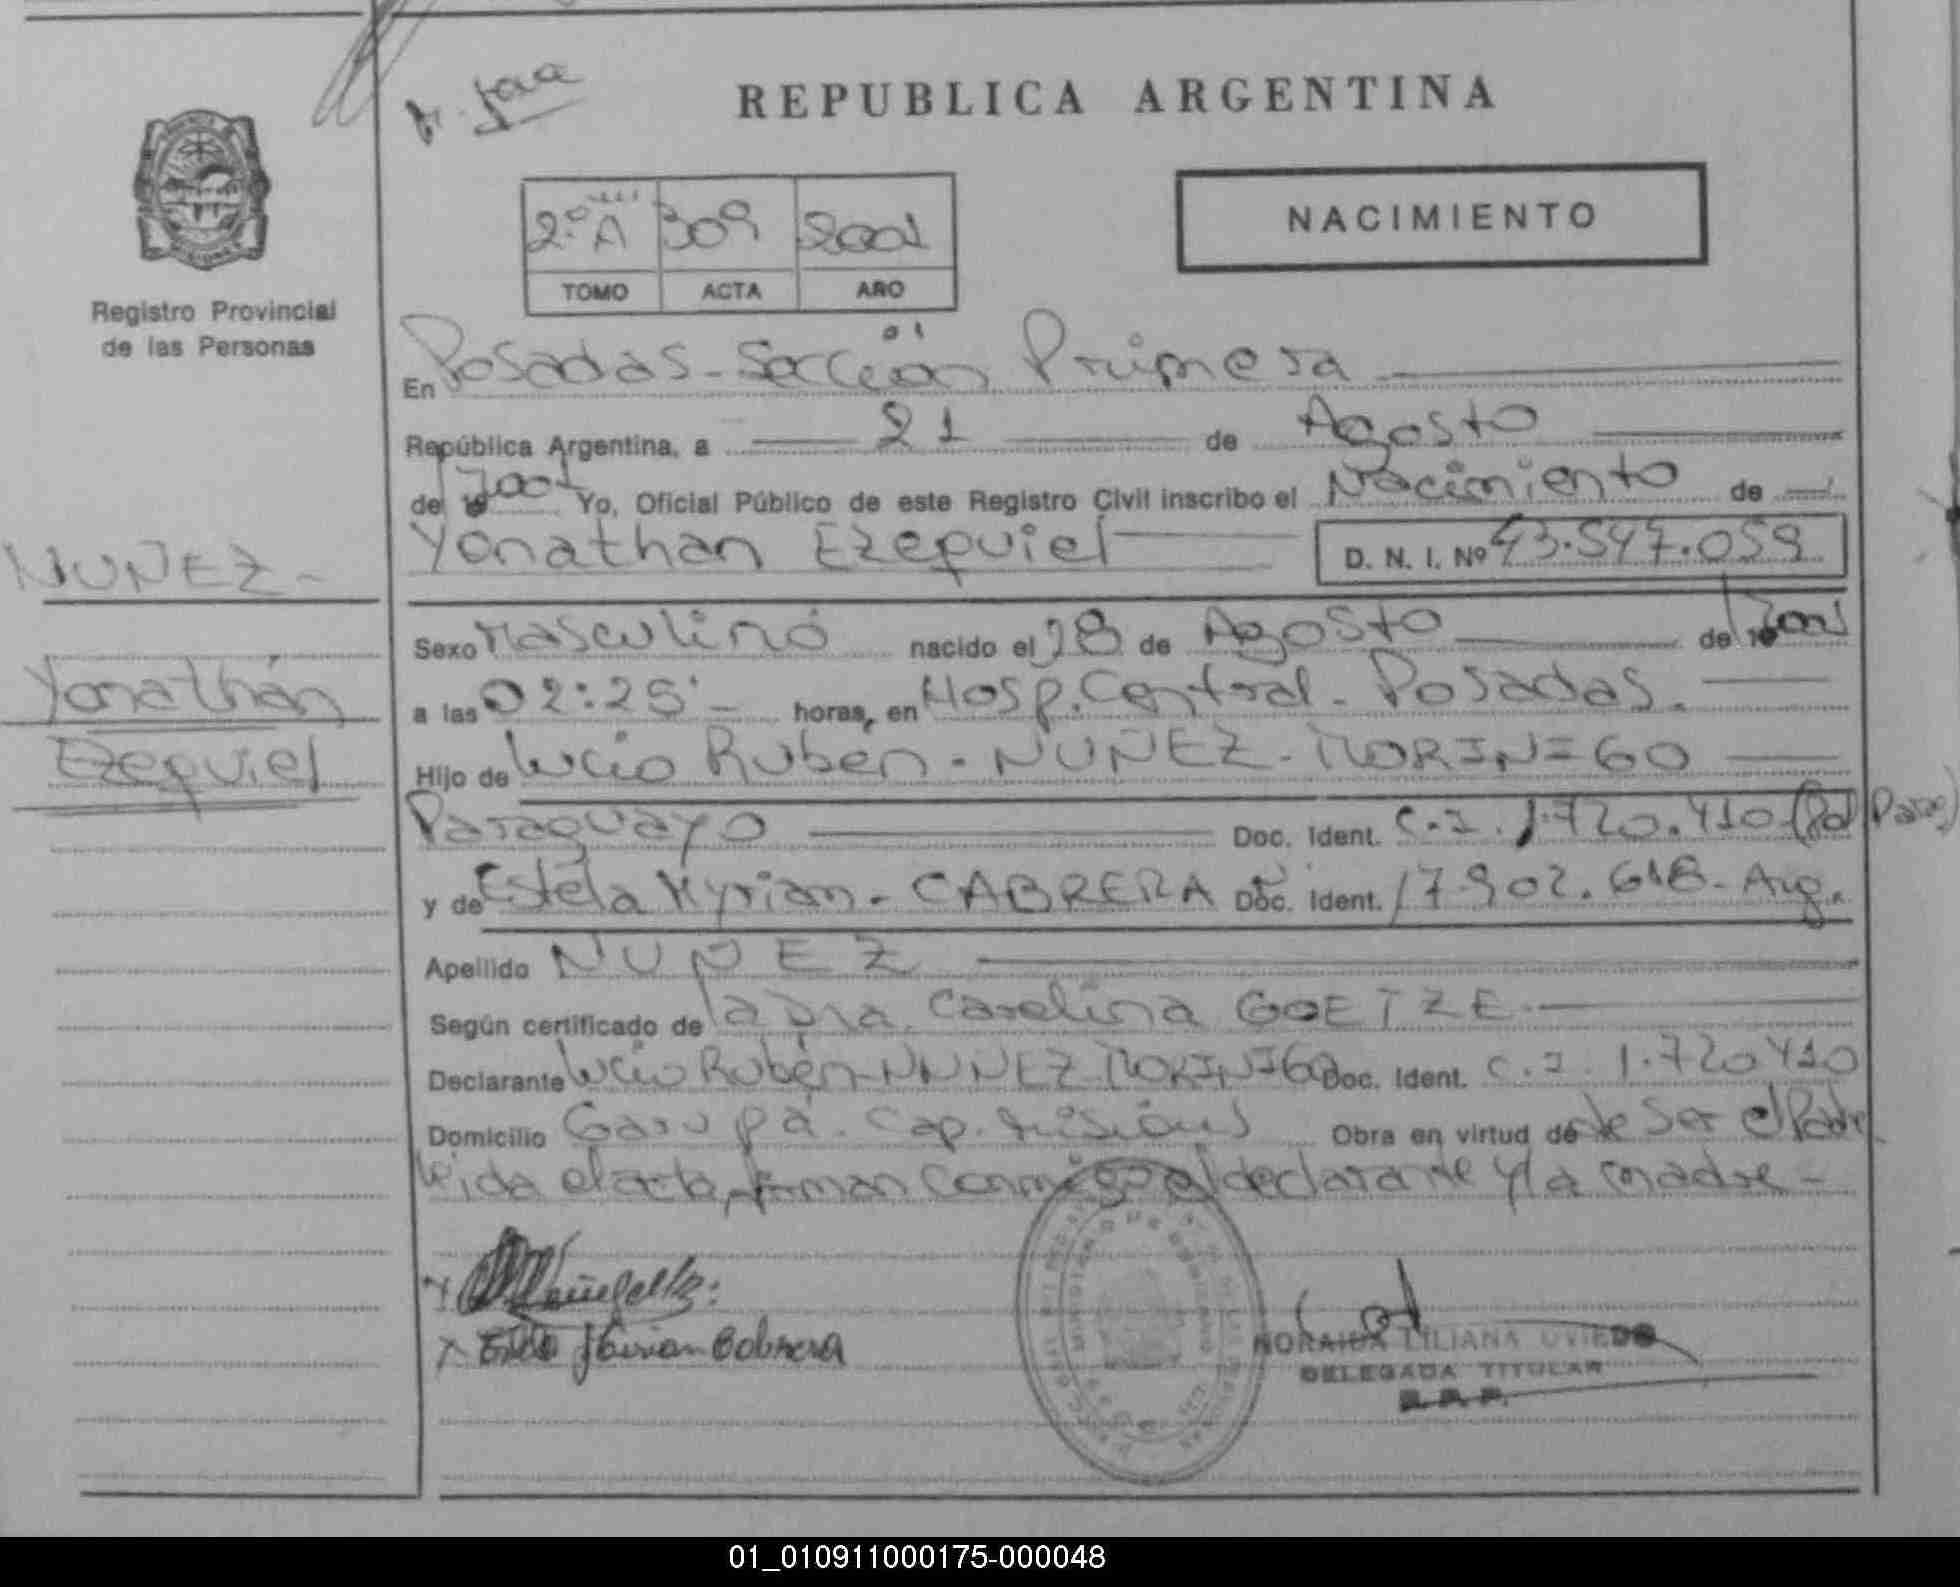 REPUBLICA ARGENTINA
2º A 309 2001
TOMO ACTA AÑO
NACIMIENTO
Registro Provincial
de las Personas
En Posadas - Sección Primera
República Argentina, a 21 de Agosto
de 2001 Yo, Oficial Público de este Registro Civil inscribo el Nacimiento de
Yonathan Ezequiel D. N. I. Nº 43.547.059
NUÑEZ -
Yonathan
Ezequiel
Sexo Masculino nacido el 18 de Agosto de 2001
a las 02:25 - horas, en Hosp. Central - Posadas.
Hijo de Lucio Ruben - NUÑEZ - MORINIGO
Paraguayo Doc. Ident. C.I. 1.720.410 (Pol Parag)
y de Estela Myrian - CABRERA Doc. Ident. 17.902.618 - Arg.
Apellido NUÑEZ
Según certificado de la Dra. Carolina GOETZE -
Declarante Lucio Rubén - NUÑEZ MORINIGO Doc. Ident. C.I. 1.720410
Domicilio Garupá - Cap. Misiones Obra en virtud de de ser el Padre
Leida el acta, firman conmigo el declarante y la madre -
Myrian Cabrera
LILIANA OVIEDO
DELEGADA TITULAR
R. P. P.
01_010911000175-000048